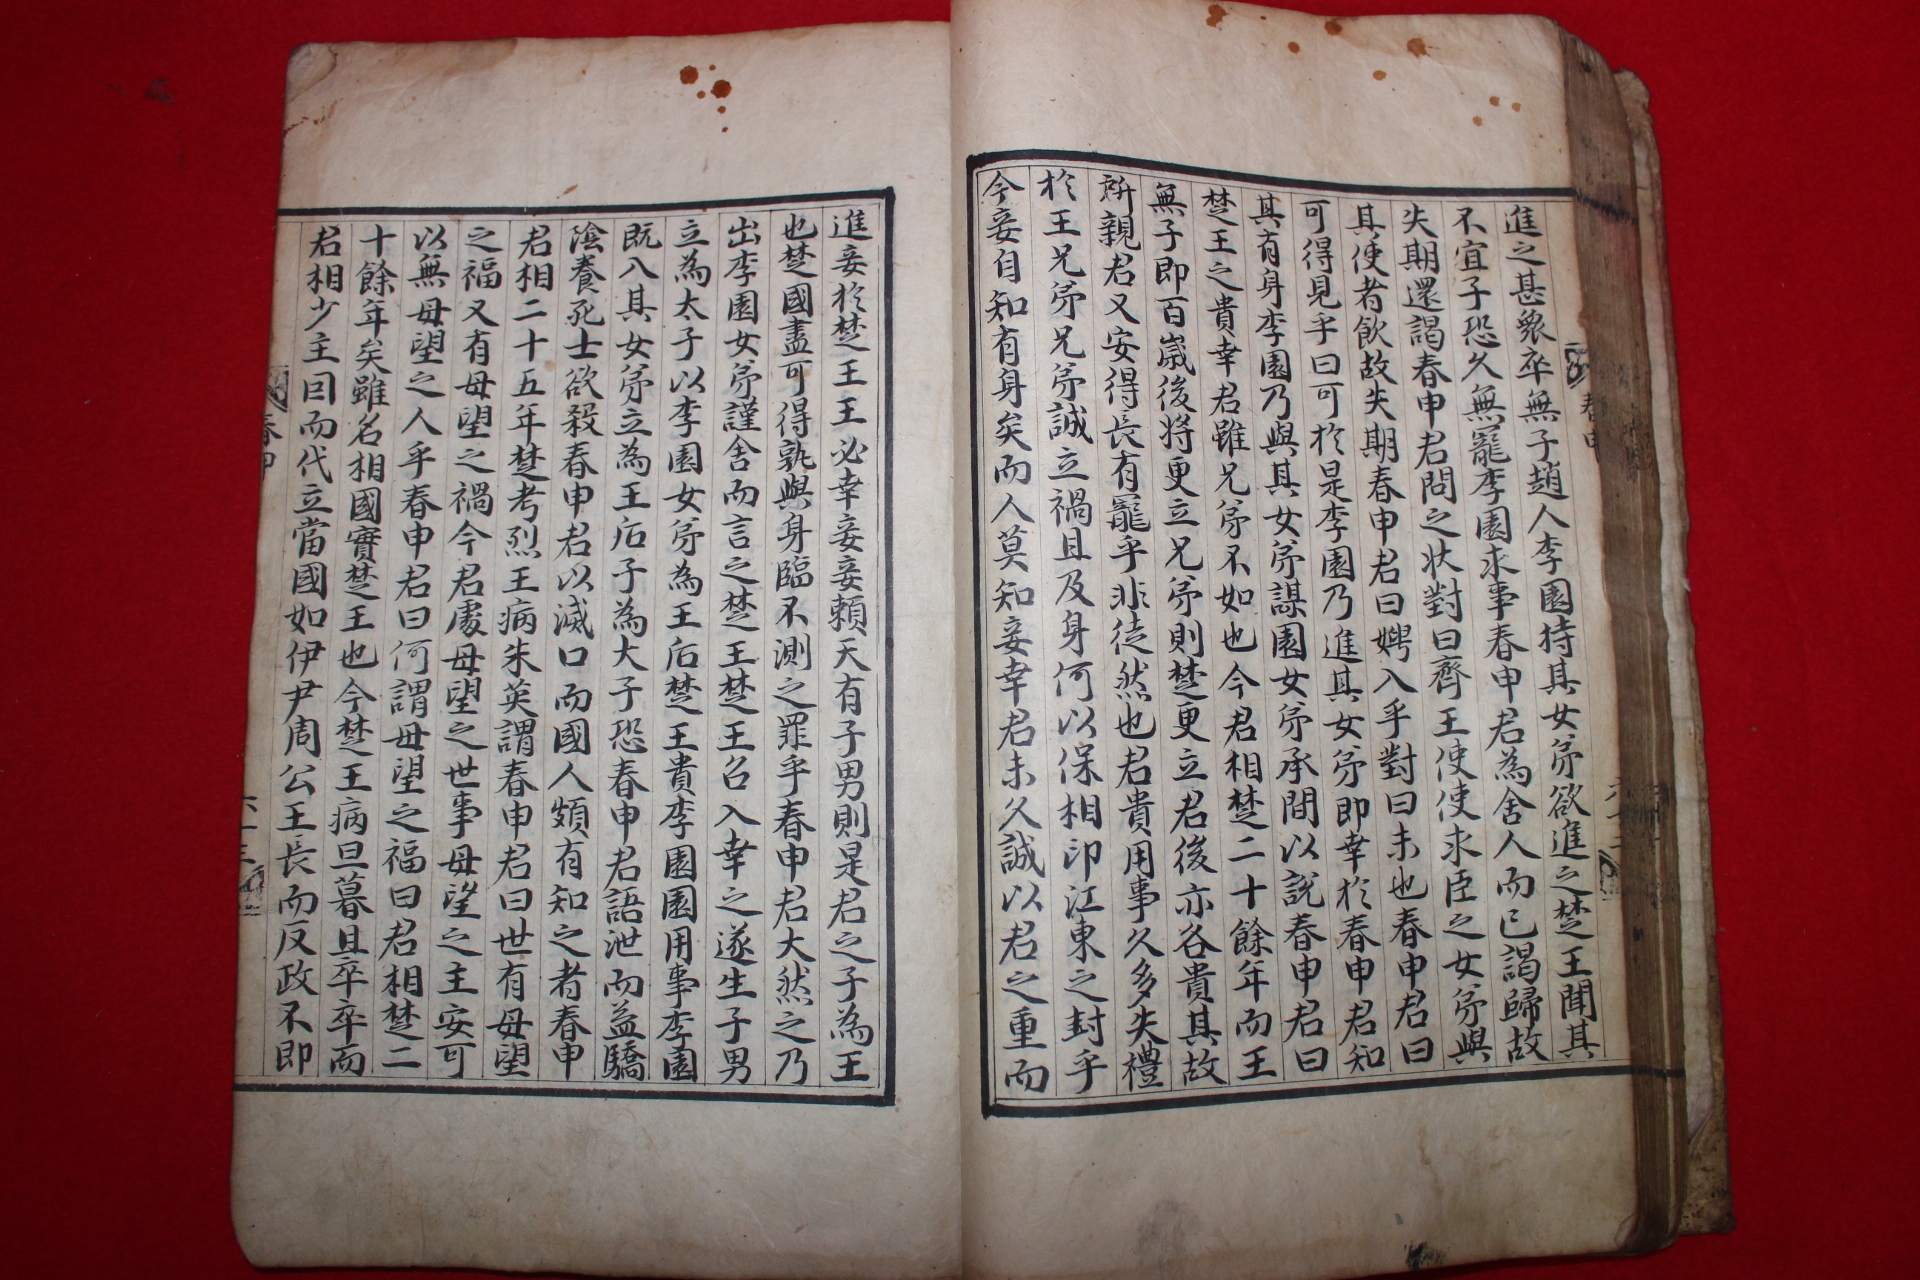 進之甚衆卒無子趙人李園持其女弟欲進之楚王聞其
不宜子恐久無寵李園求事春申君為舍人而已謁歸故
失期還謁春申君問之狀對曰齊王使使求臣之女弟與
其使者飲故失期春申君曰娉入乎對曰未也春申君曰
可得見乎曰可於是李園乃進其女弟即幸於春申君知
其有身李園乃與其女弟謀園女弟承間以說春申君曰
楚王之貴幸君雖兄弟不如也今君相楚二十餘年而王
無子即百歲後將更立兄弟則楚更立君後亦各貴其故
所親君又安得長有寵乎非徒然也君貴用事久多失禮
於王兄弟兄弟誠立禍且及身何以保相印江東之封乎
今妾自知有身矣而人莫知妾幸君未久誠以君之重而
進妾於楚王王必幸妾妾賴天有子男則是君之子為王
也楚國盡可得孰與身臨不測之罪乎春申君大然之乃
出李園女弟謹舍而言之楚王楚王召入幸之遂生子男
立為太子以李園女弟為王后楚王貴李園園用事李園
既入其女弟立為王后子為太子恐春申君語泄而益驕
陰養死士欲殺春申君以滅口而國人頗有知之者春申
君相二十五年楚考烈王病朱英謂春申君曰世有毋望
之福又有毋望之禍今君處毋望之世事毋望之主安可
以無毋望之人乎春申君曰何謂毋望之福曰君相楚二
十餘年矣雖名相國實楚王也今楚王病旦暮且卒卒而
君相少主因而代立當國如伊尹周公王長而反政不即
春申
六十三